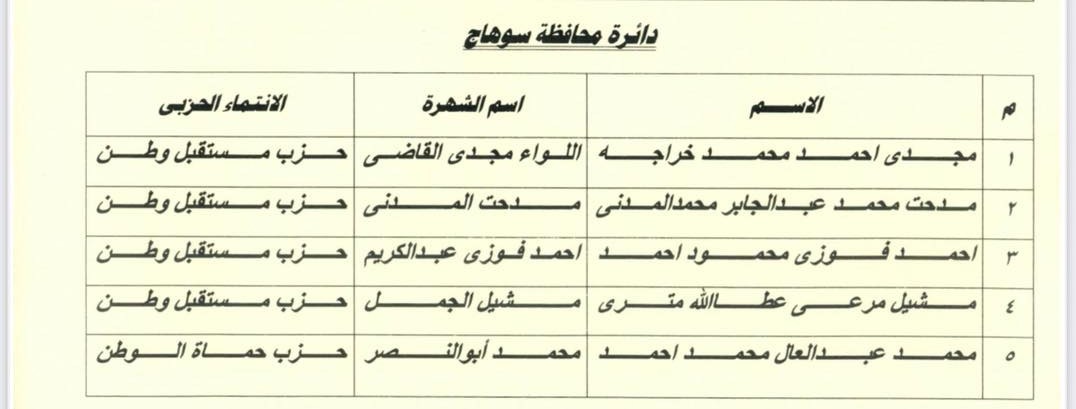 دائرة محافظة سوهاج
م الاسم اسم الشهرة الانتماء الحزبى
١ مجدى احمد محمد خراجه اللواء مجدى القاضى حزب مستقبل وطن
٢ مدحت محمد عبدالجابر محمدالمدنى مدحت المدنى حزب مستقبل وطن
٣ احمد فوزى محمود احمد احمد فوزى عبدالكريم حزب مستقبل وطن
٤ مشيل مرعى عطاالله مترى مشيل الجمل حزب مستقبل وطن
٥ محمد عبدالعال محمد احمد محمد أبوالنصر حزب حماة الوطن